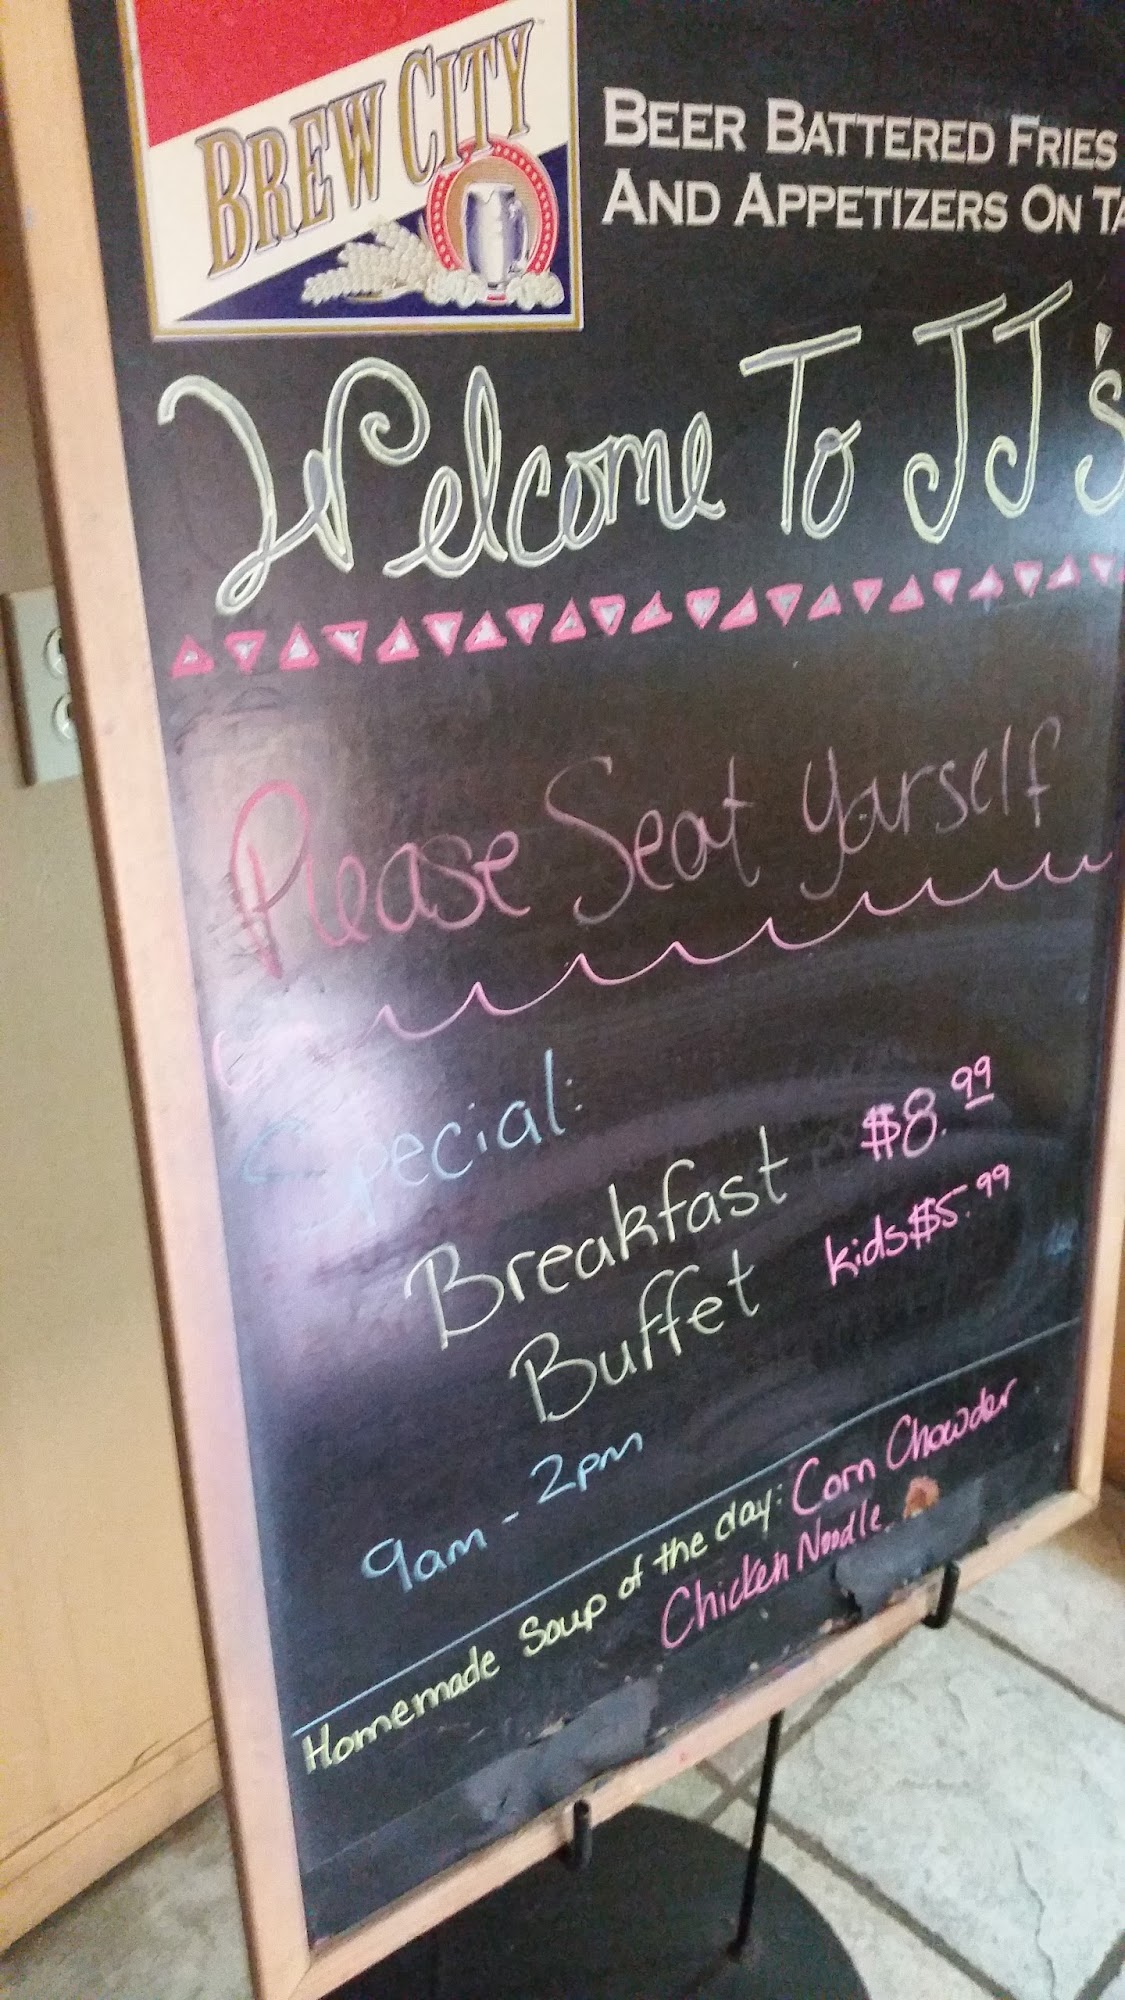 BREW CITY
BEER BATTERED FRIES
AND APPETIZERS ON TA
Welcome To JJ's
Please Seat Yourself
Special:
Breakfast $8.99
Buffet kids $5.99
9am - 2pm
Homemade Soup of the day: Corn Chowder
Chicken Noodle